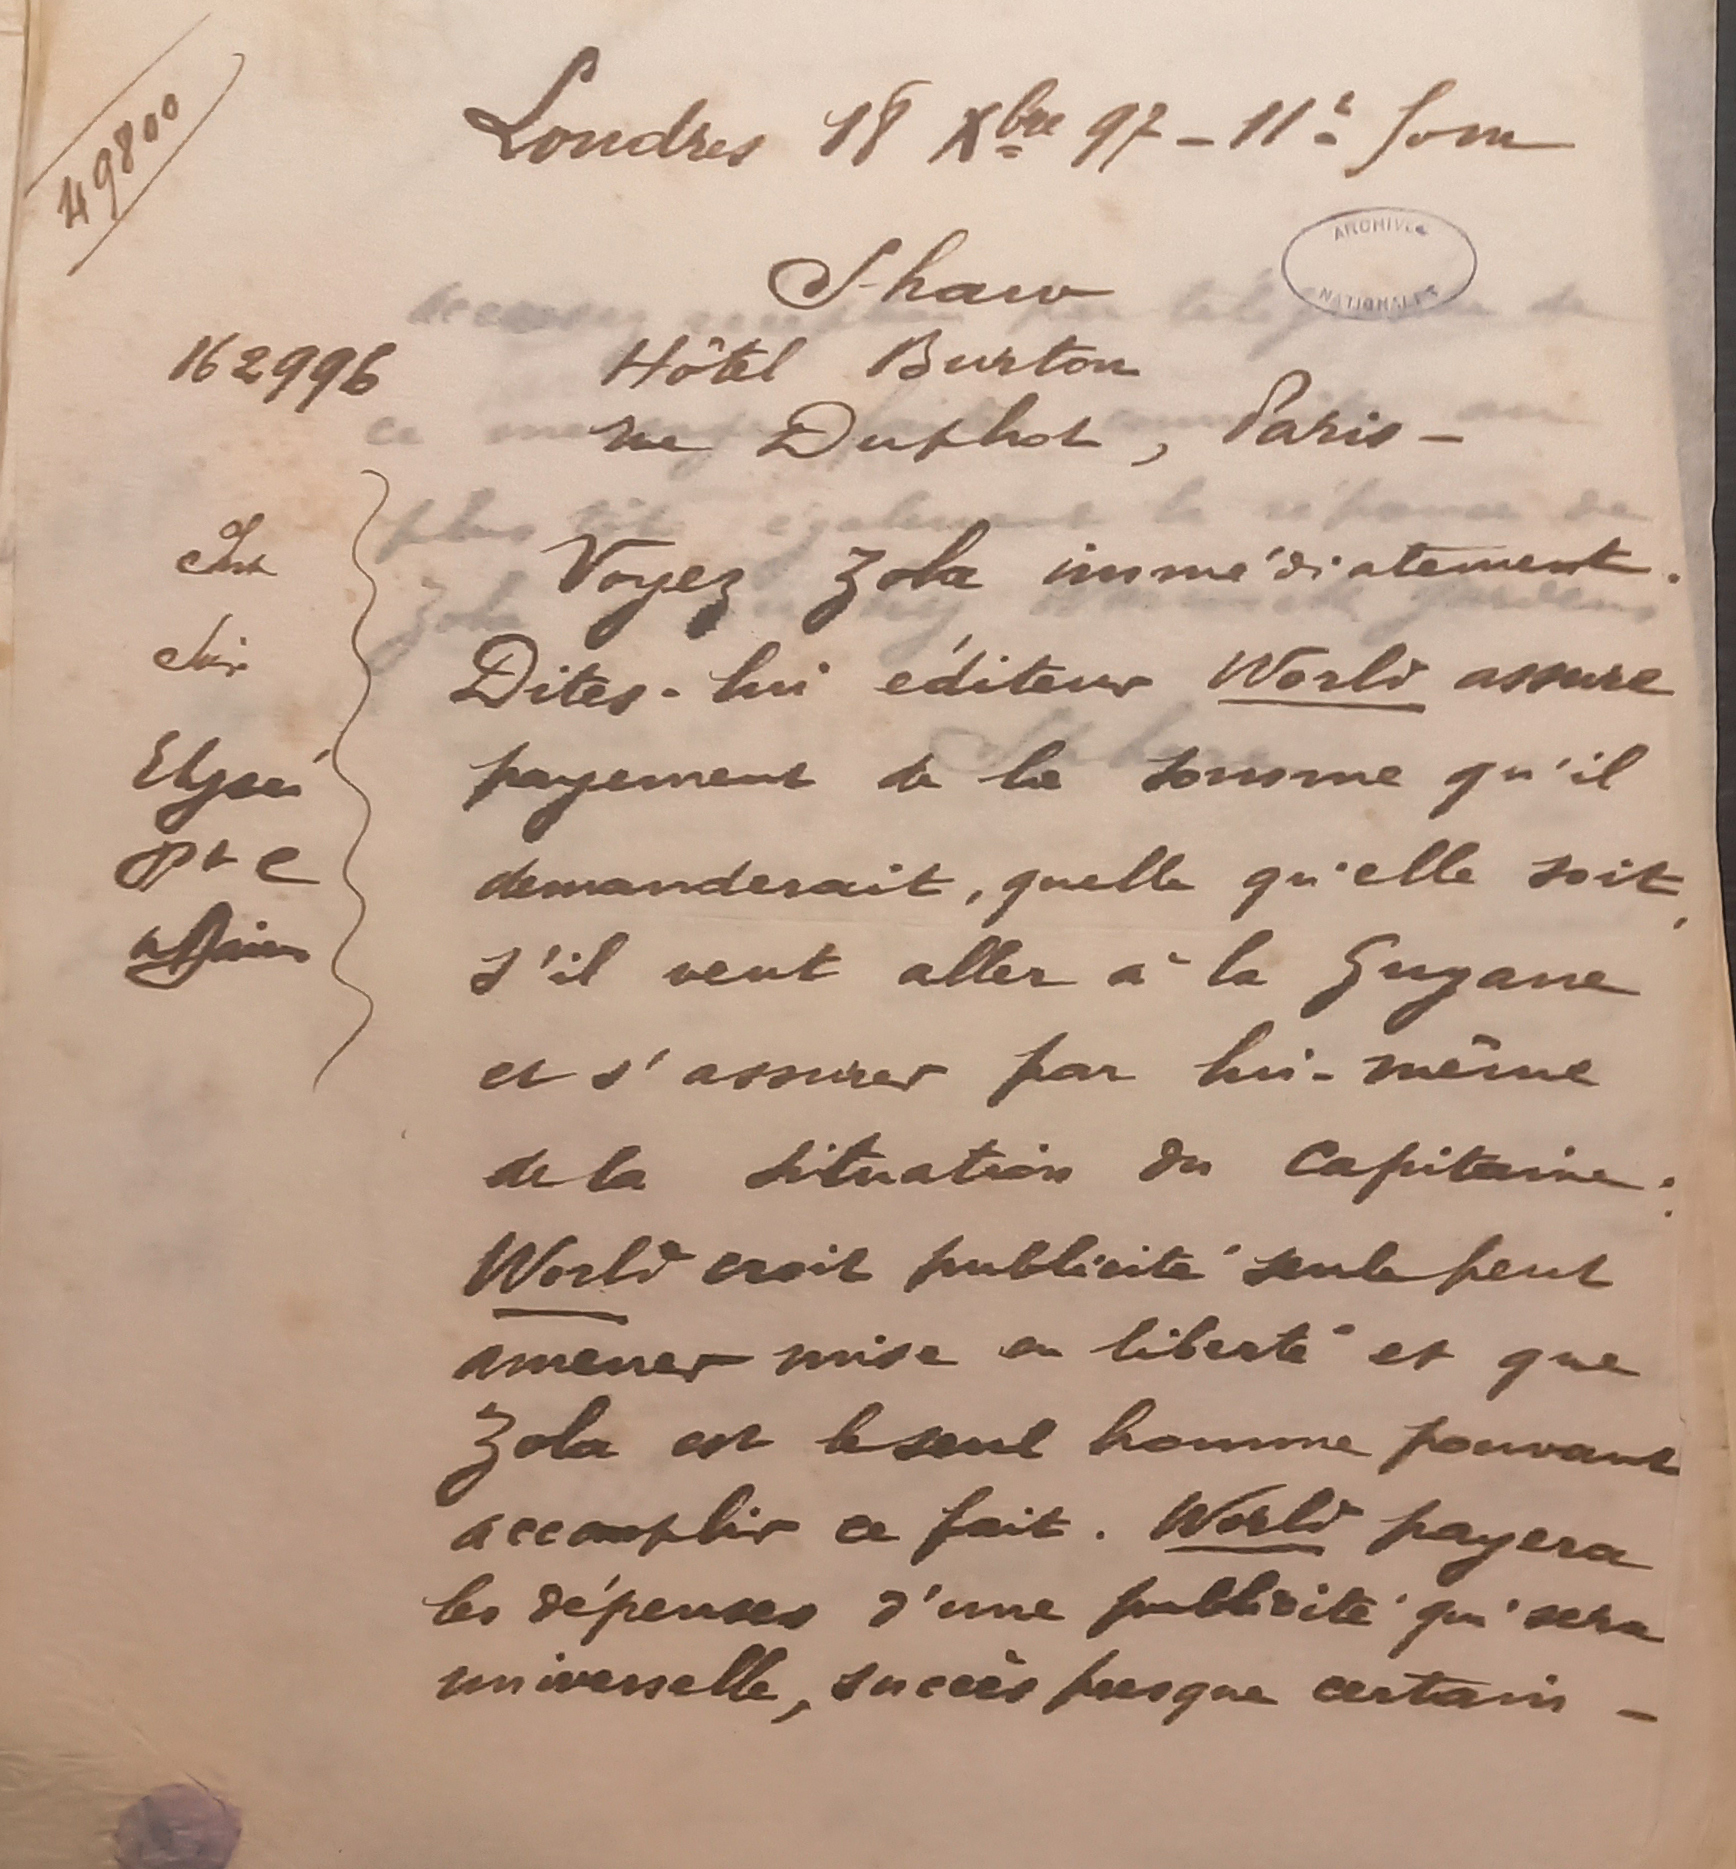 49800
Londres 18 Xbre 97 - 11h Som
ARCHIVES
NATIONALES
Shaw
162996
Hôtel Burton
rue Duphot, Paris -
Int
Elysée
Voyez Zola immédiatement.
Dites-lui éditeur World assure
payement de la somme qu'il
demanderait, quelle qu'elle soit,
s'il veut aller à la Guyane
et s'assurer par lui-même
de la situation du Capitaine:
World croit publicité seule peut
amener mise en liberté et que
Zola est le seul homme pouvant
accomplir ce fait. World payera
les dépenses d'une publicité qui sera
universelle, succès presque certain -